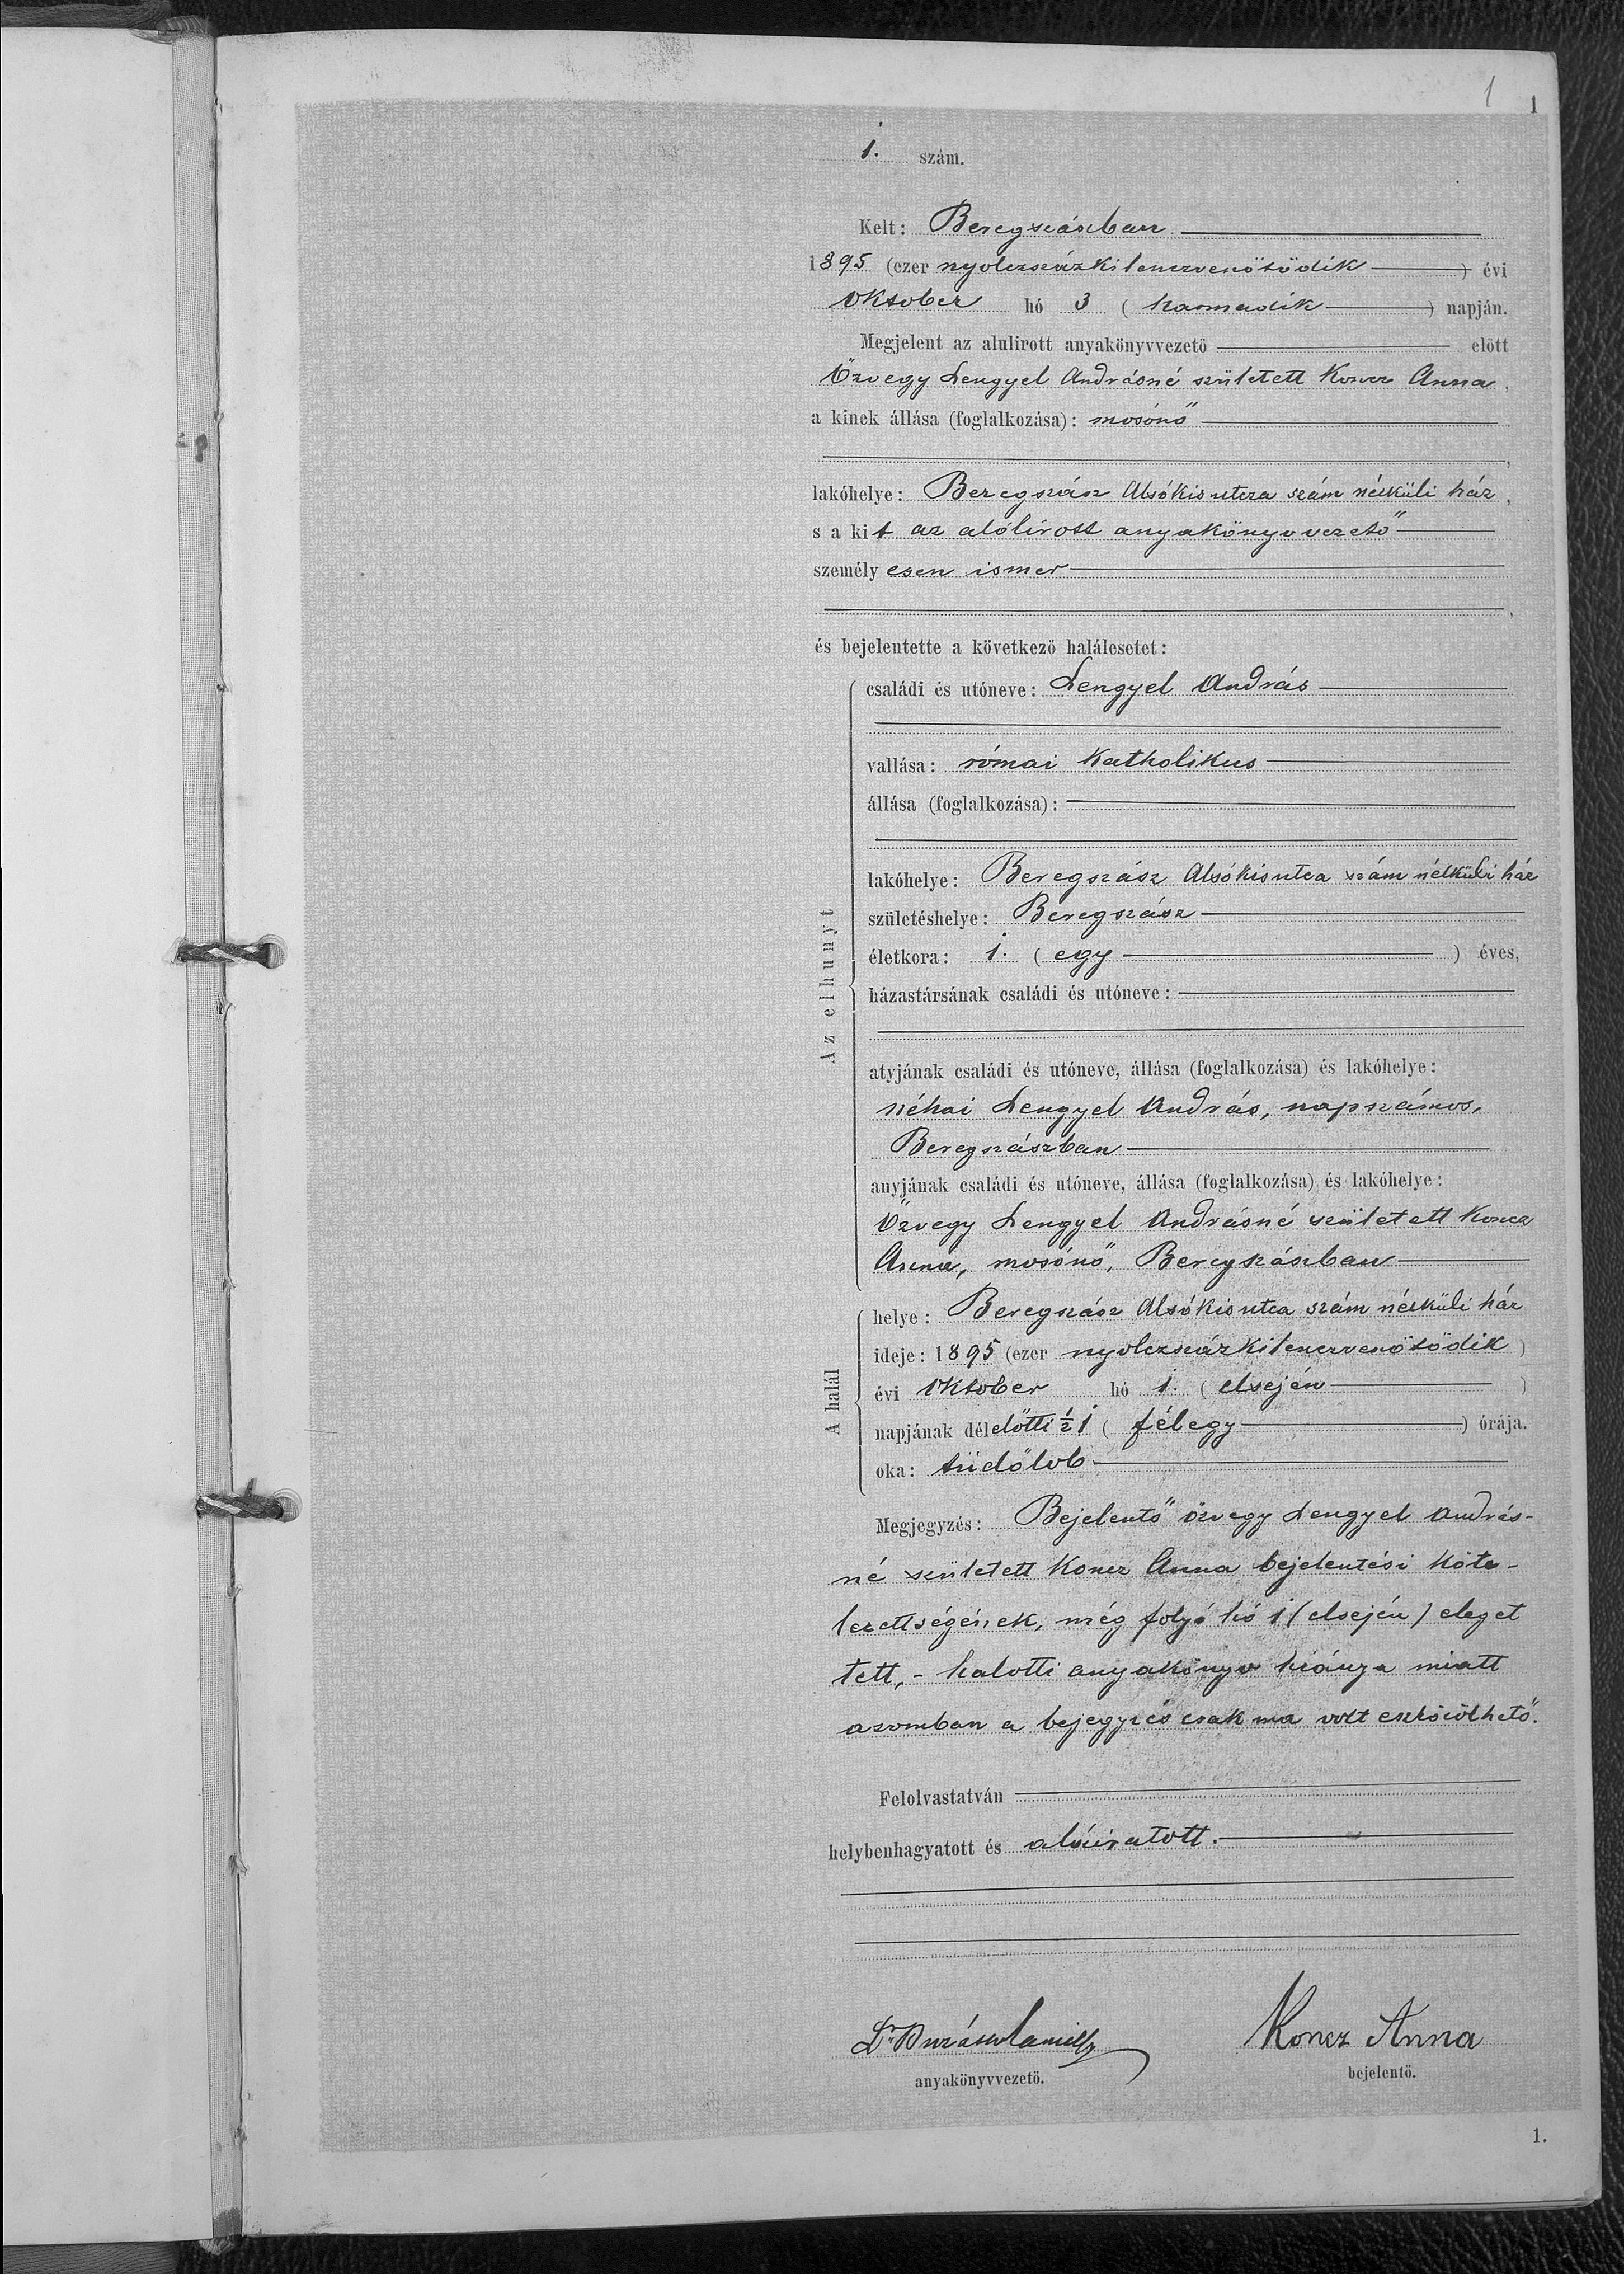 1
1
1. szám.
Kelt: Beregszászban
1895 (ezer nyolczszázkilenczvenötödik) évi
október hó 3 (harmadik) napján.
Megjelent az alulirott anyakönyvvezető előtt
Özvegy Lengyel Andrásné született Koncz Anna,
a kinek állása (foglalkozása): mosónő
lakóhelye: Beregszász Alsókisutcza szám nélküli ház,
s a kit az alólirott anyakönyvvezető
személyesen ismer
,
és bejelentette a következő halálesetet:
Az elhunyt
családi és utóneve: Lengyel András
vallása: római katholikus
állása (foglalkozása):
lakóhelye: Beregszász Alsókisutca szám nélküli ház
születéshelye: Beregszász
életkora: 1. (egy) éves,
házastársának családi és utóneve:
atyjának családi és utóneve, állása (foglalkozása) és lakóhelye:
néhai Lengyel András, napszámos,
Beregszászban
anyjának családi és utóneve, állása (foglalkozása) és lakóhelye:
Özvegy Lengyel Andrásné született Koncz
Anna, mosónő, Beregszászban
A halál
helye: Beregszász Alsókisutca szám nélküli ház
ideje: 1895 (ezer nyolczszázkilenczvenötödik)
évi október hó 1. (elsején)
napjának délelőtti ½1 (félegy) órája.
oka: tüdőlob
Megjegyzés: Bejelentő özvegy Lengyel András-
né született Koncz Anna bejelentési köte-
lezettségének, még folyó hó 1 (elsején) eleget
tett, - halotti anyakönyv hiánya miatt
azomban a bejegyzés csak ma volt eszközölhető.
Felolvastatván
helybenhagyatott és aláiratott.
Dr
Koncz Anna
anyakönyvvezető.
bejelentő.
1.